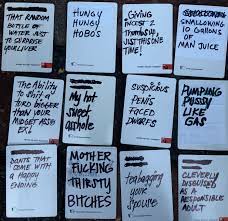 THAT RANDOM
BOTTLE OF
WATER JUST
TO SURPRISE
YOUR LOVER
HUNGY
HUNGY
HOBOS
GIVING
INCEST 2
THUMBS UP,
JUST THIS ONE
TIME!
SWALLOWING
10 GALLONS
OF
MAN JUICE
The Ability
to Shit a
turd bigger
than your
MIDGET ASS
EX!
My hot
sweet
asshole
SUSPICIOUS
PENIS
FACED
DWARFS
PUMPING
PUSSY
LIKE
GAS
PANTS THAT
COME WITH
a HAPPY
ENDING
MOTHER
FUCKING
THIRSTY
BITCHES
Teabagging
your
Spouse
CLEVERLY
DISGUISED
AS A
RESPONSIBLE
ADULT